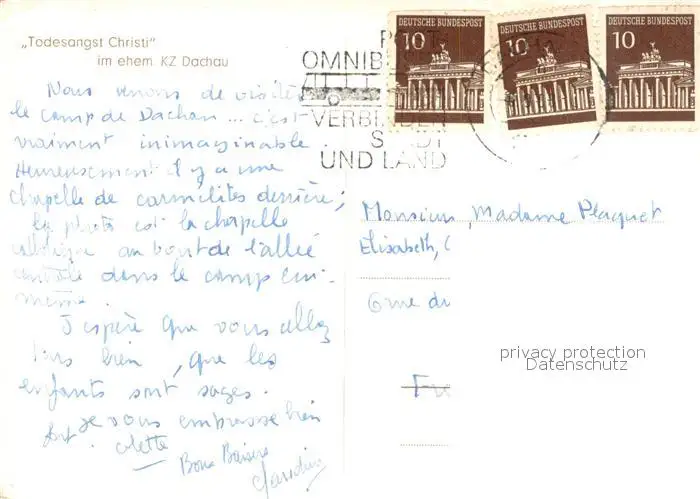 „Todesangst Christi"
im ehem. KZ Dachau
DEUTSCHE BUNDESPOST
10
DEUTSCHE BUNDESPOST
10
DEUTSCHE BUNDESPOST
10
POST
OMNIB
VERBINDEN
STADT
UND LAND
Nous venons de visiter
le camp de Dachau ... c'est
vraiment inimaginable.
Heureusement il y a une
chapelle de carmélites derrière;
la photo est la chapelle
catholique au bout de l'allée
centrale dans le camp lui-
même.
J'espère que vous allez
tous bien, que les
enfants sont sages.
Je vous embrasse bien
fort. Colette
Bons Baisers
Claudine
Monsieur, Madame Plaquet
Elisabeth, C
6 rue du
Fr
privacy protection
Datenschutz